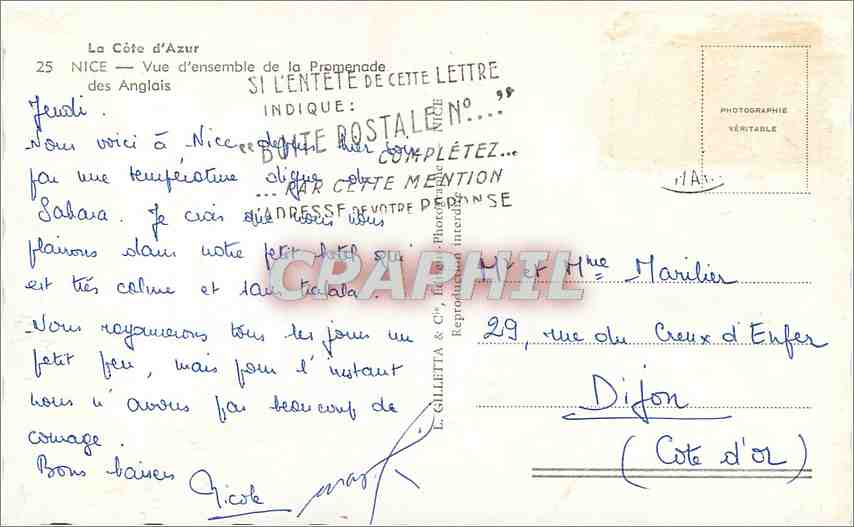 La Côte d'Azur
25 NICE — Vue d'ensemble de la Promenade
des Anglais
SI L'ENTÊTE DE CETTE LETTRE
INDIQUE:
"BOITE POSTALE N°..."
COMPLÉTEZ...
...PAR CETTE MENTION
L'ADRESSE DE VOTRE RÉPONSE
PHOTOGRAPHIE
VÉRITABLE
Jeudi.
Nous voici à Nice depuis hier soir
par une température digne du
Sahara. Je crois que nous nous
plairons dans notre petit hotel qui
est très calme et sans
Nous rayonnerons tous les jours un
petit peu, mais pour l'instant
nous n'avons pas beaucoup de
courage.
Bons baisers
Nicole
CPARHIL
L. GILLETTA & Cie, Photographe NICE
Reproduction interdite
Mr et Mme Marilier
29, rue du Creux d'Enfer
Dijon
(Cote d'or)